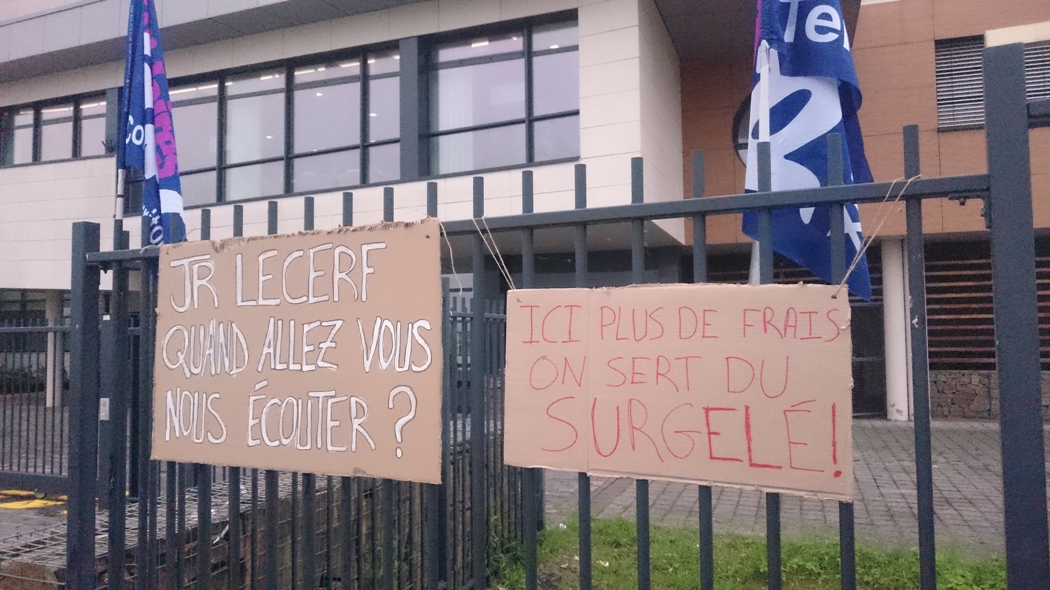 JR LECERF
QUAND ALLEZ VOUS
NOUS ÉCOUTER ?
ICI PLUS DE FRAIS
ON SERT DU
SURGELÉ!